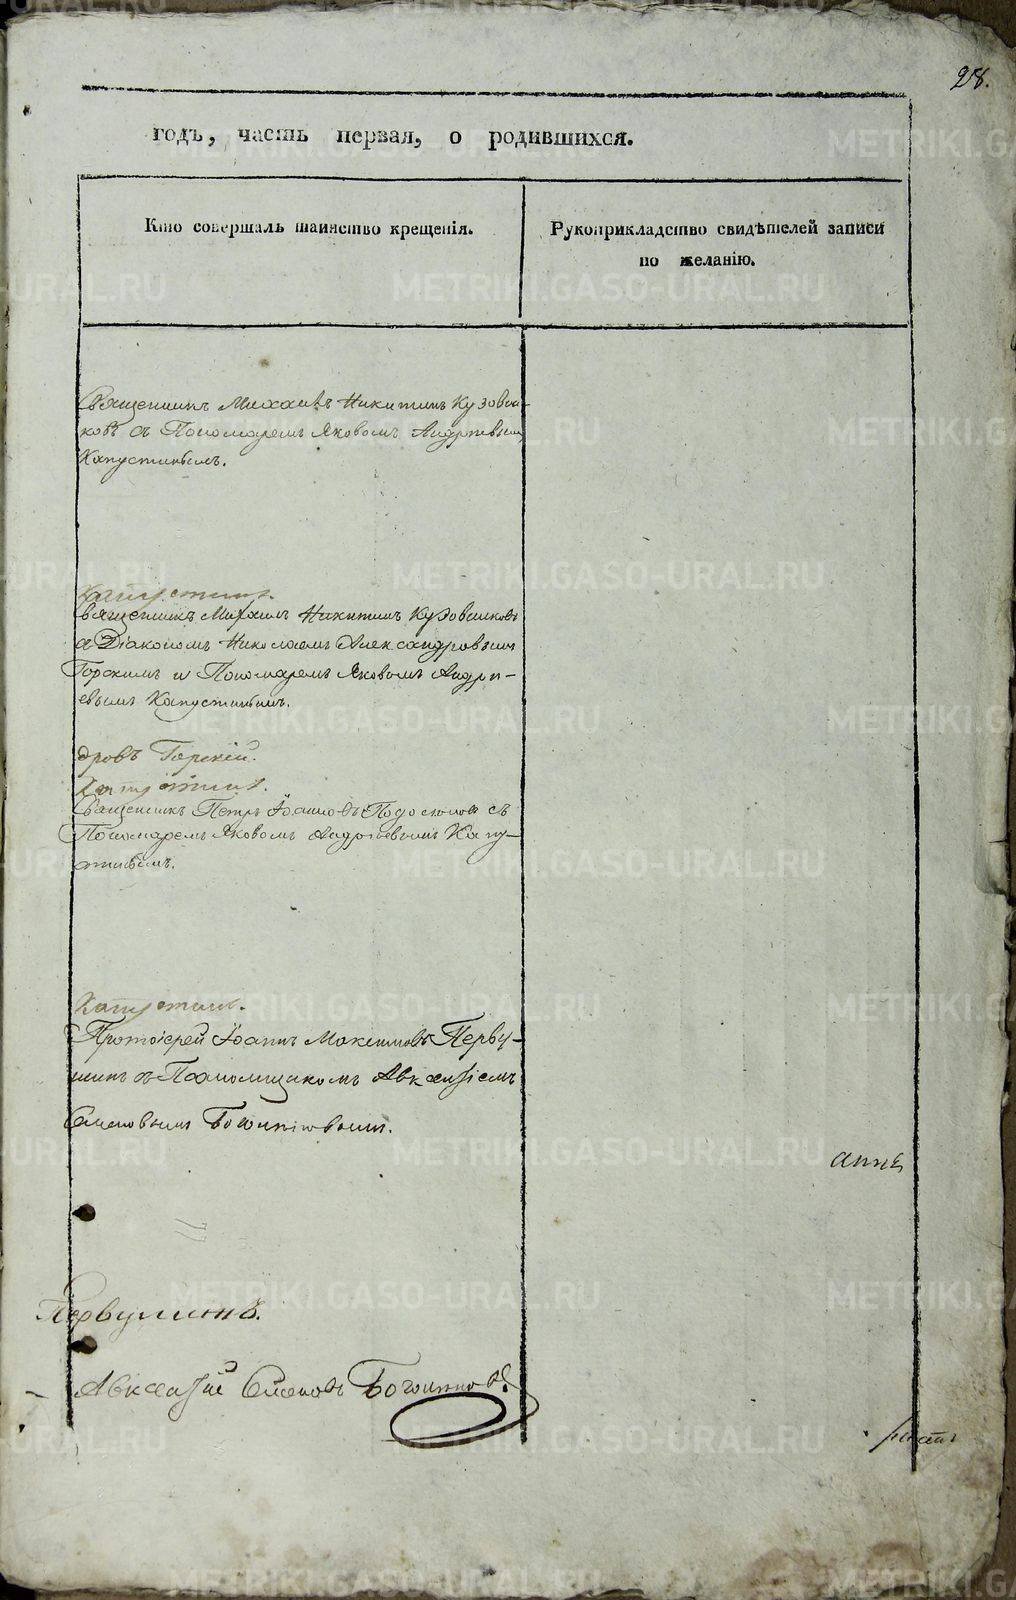 28.
годъ, часть первая, о родившихся.
Кто совершалъ таинство крещенія.
Рукоприкладство свидѣтелей записи
по желанію.
Священникъ Михаилъ Никитинъ Кузовни-
ковъ съ Пономаремъ Яковомъ Андреевымъ
Капустинымъ.
Капустинъ.
Священникъ Михаилъ Никитинъ Кузовниковъ
съ Діакономъ Николаемъ Александровымъ
Горскимъ и Пономаремъ Яковомъ Андре-
евымъ Капустинымъ.
дровъ Горскій.
Капустинъ.
Священникъ Петръ Іоанновъ съ
Пономаремъ Яковомъ Андреевымъ Капу-
стинымъ.
Капустинъ.
Протоіерей Іоаннъ Максимовъ Перву-
шинъ съ Авксентіемъ
Семеновымъ
Первушинъ.
Авксентій Семеновъ
METRIKI.GASO-URAL.RU